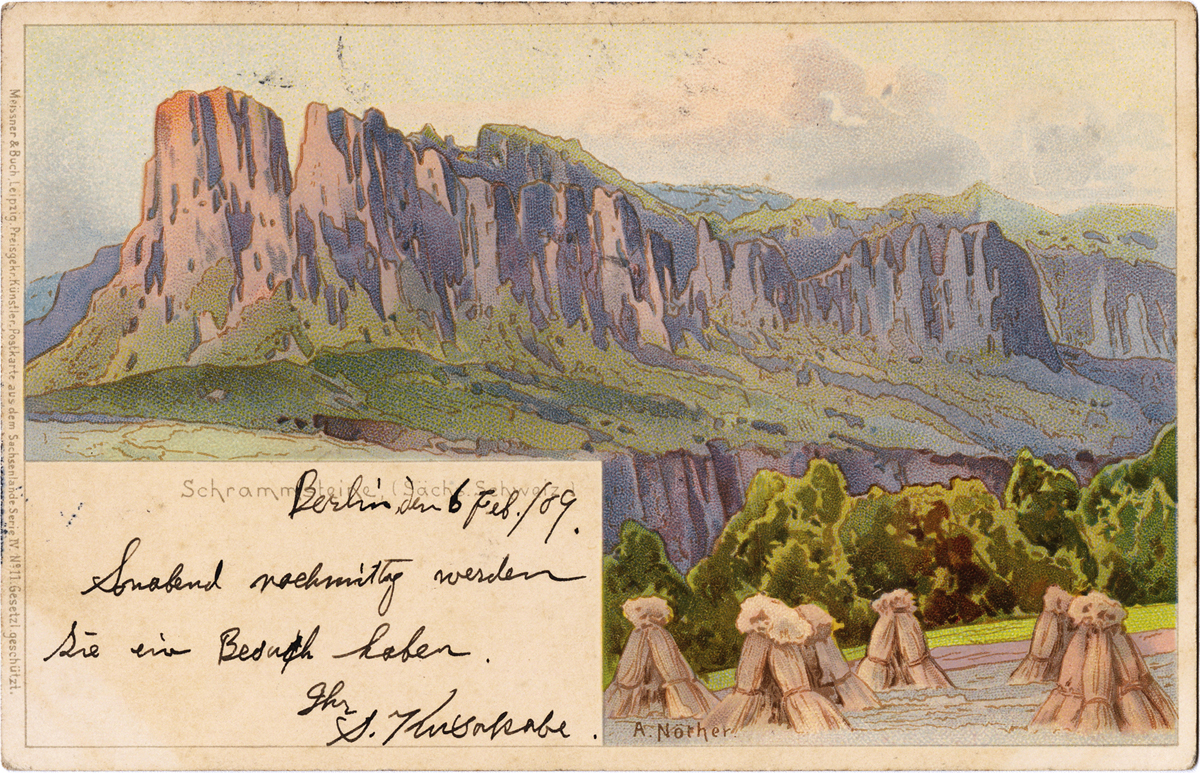 Meissner & Buch, Leipzig, Preisgekr. Künstler-Postkarte aus dem Sachsenlande Serie IV. No 11. Gesetzl. geschützt.
Schrammsteine. (Sächs. Schweiz.)
Berlin, den 6 Feb./89.
Sonabend nachmittag werden
Sie ein Besuch haben.
Ihr
S. Kusakabe.
A. Nöther.